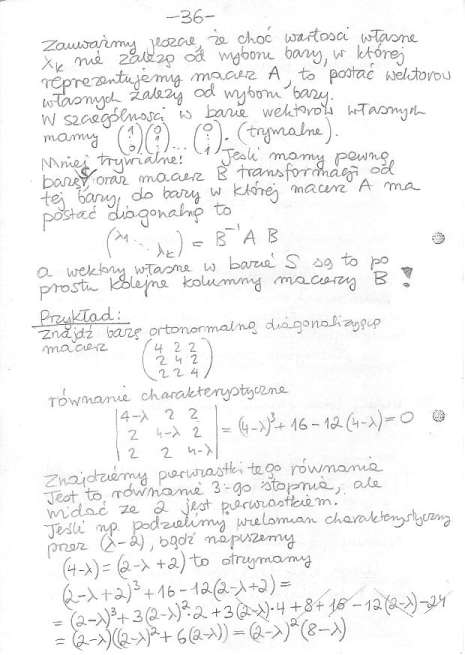 -36-
Zauważmy jeszcze, że choć wartości własne
λk nie zależą od wyboru bazy, w której
reprezentujemy macierz A, to postać wektorów
własnych zależy od wyboru bazy.
W szczególności w bazie wektorów własnych
mamy (1 0 ⋮ 0) (0 1 ⋮ 0) ... (0 ⋮ 1). (trywialne).
Mniej trywialne: Jeśli mamy pewną
bazę S, oraz macierz B transformacji od
tej bazy, do bazy w której macierz A ma
postać diagonalną to
(λ1 ⋱ λk) = B⁻¹ A B
a wektory własne w bazie S są to po
prostu kolejne kolumny macierzy B !
Przykład:
Znajdź bazę ortonormalną diagonalizującą
macierz (4 2 2
2 4 2
2 2 4)
równanie charakterystyczne
|4-λ 2 2
2 4-λ 2
2 2 4-λ| = (4-λ)³ + 16 - 12(4-λ) = 0
Znajdziemy pierwiastki tego równania
Jest to równanie 3-go stopnia, ale
widać że 2 jest pierwiastkiem.
Jeśli np. podzielimy wielomian charakterystyczny
przez (λ-2), bądź napiszemy
(4-λ) = (2-λ+2) to otrzymamy
(2-λ+2)³ + 16 - 12(2-λ+2) =
= (2-λ)³ + 3(2-λ)²·2 + 3(2-λ)·4 + 8 + 16 - 12(2-λ) - 24
= (2-λ)((2-λ)² + 6(2-λ)) = (2-λ)²(8-λ)